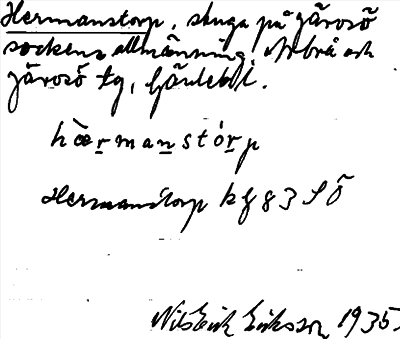 Hermanstorp, stuga på Järvsö
sockens allmänning, Arbrå och
Järvsö tg, Gävlebl.
hærmanstórp
Hermanstorp kg 83 SÖ
Nils Erik Eriksson 1935.